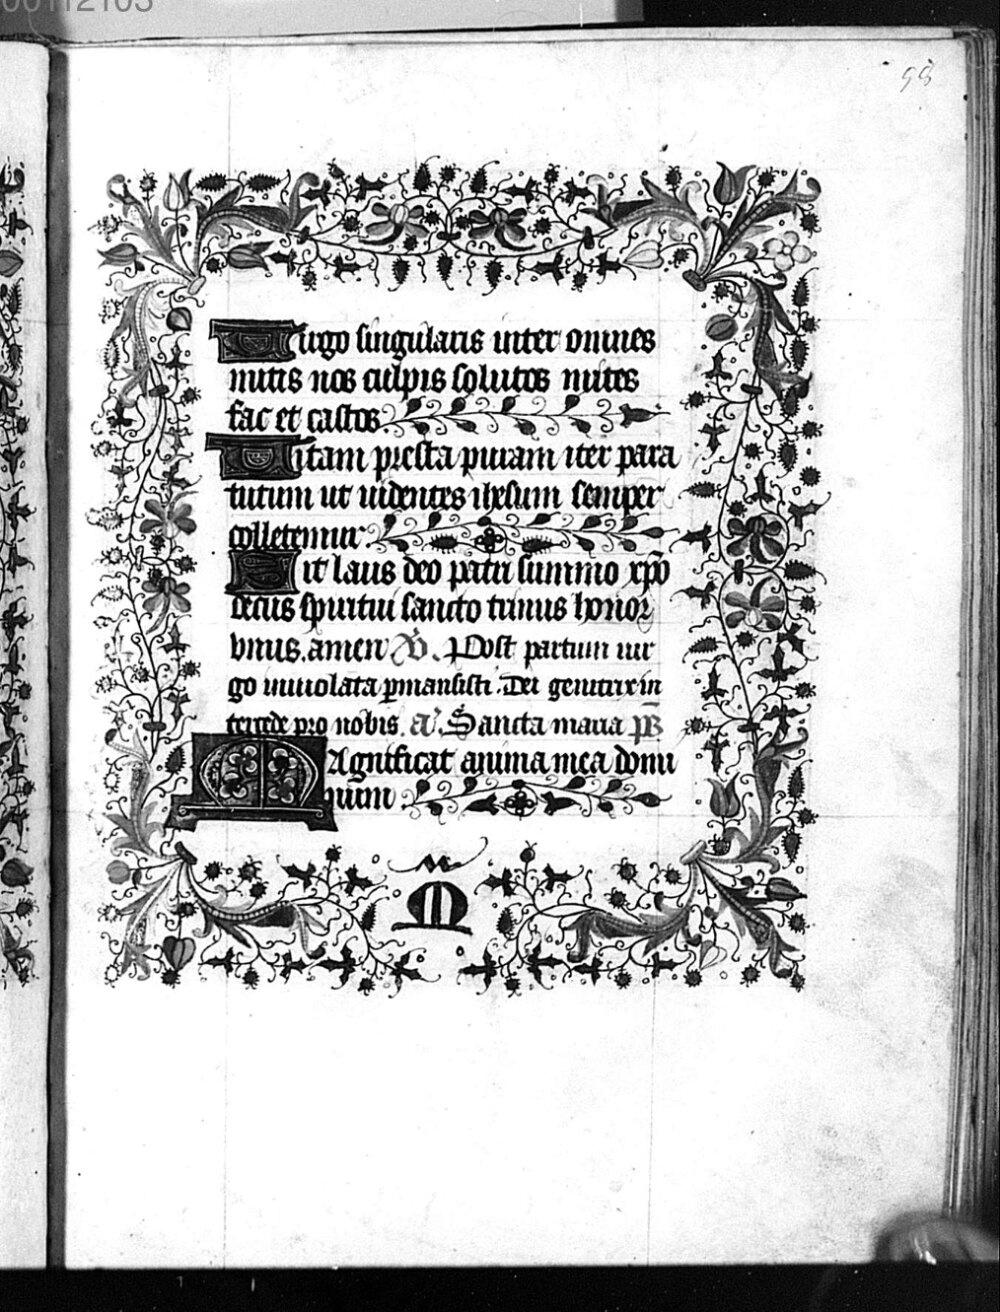 00112103
98
Virgo singularis inter omnes
mitis nos culpis solutos mites
fac et castos
Vitam presta puram iter para
tutum ut videntes ihesum semper
colletemur
Sit laus deo patri summo xp̄o
decus spiritui sancto trinus honor
vnus. amen V̄. Post partum uir
go inuiolata ꝑmansisti. Dei genitrix in
tercede pro nobis. a'. Sancta maria p̄s
Magnificat anima mea domi
num
M